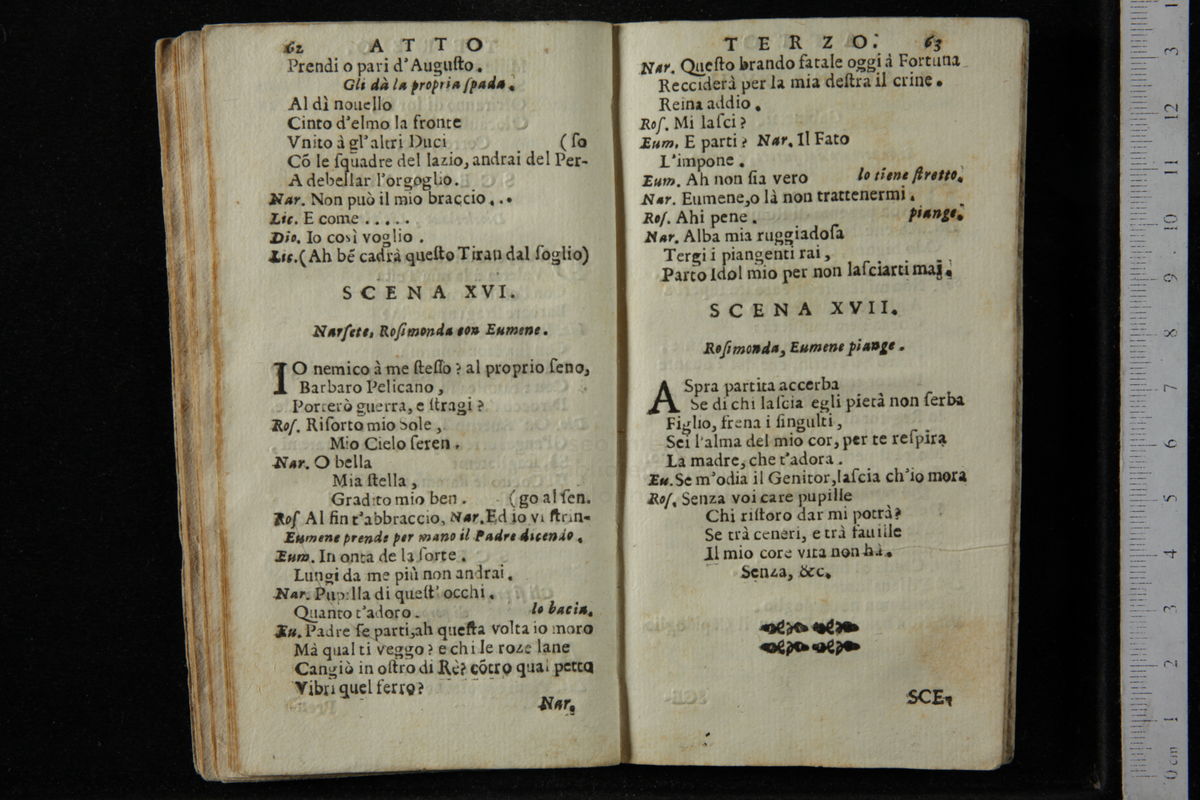 62 ATTO
Prendi o pari d'Auguſto.
Gli dà la propria ſpada.
Al dì nouello
Cinto d'elmo la fronte
Vnito à gl'altri Duci (ſo
Cõ le ſquadre del lazio, andrai del Per-
A debellar l'orgoglio.
Nar. Non può il mio braccio...
Lic. E come .....
Dio. Io così voglio.
Lic. (Ah bẽ cadrà queſto Tiran dal ſoglio)
SCENA XVI.
Narſete, Roſimonda con Eumene.
IO nemico à me ſteſſo? al proprio ſeno,
Barbaro Pelicano,
Porterò guerra, e ſtragi?
Roſ. Riſorto mio Sole,
Mio Cielo ſeren.
Nar. O bella
Mia ſtella,
Gradito mio ben. (go al ſen.
Roſ Al fin t'abbraccio, Nar. Ed io vi ſtrin-
Eumene prende per mano il Padre dicendo.
Eum. In onta de la ſorte.
Lungi da me più non andrai.
Nar. Pupilla di queſt'occhi.
Quanto t'adoro. lo bacia.
Eu. Padre ſe parti, ah queſta volta io moro
Mà qual ti veggo? e chi le roze lane
Cangiò in oſtro di Rè? cõtro qual petto
Vibri quel ferro?
Nar.
TERZO. 63
Nar. Queſto brando fatale oggi à Fortuna
Recciderà per la mia deſtra il crine.
Reina addio.
Roſ. Mi laſci?
Eum. E parti? Nar. Il Fato
L'impone.
Eum. Ah non ſia vero lo tiene ſtretto.
Nar. Eumene, o là non trattenermi.
Roſ. Ahi pene. piange.
Nar. Alba mia ruggiadoſa
Tergi i piangenti rai,
Parto Idol mio per non laſciarti mai.
SCENA XVII.
Roſimonda, Eumene piange.
ASpra partita accerba
Se di chi laſcia egli pietà non ſerba
Figlio, frena i ſingulti,
Sei l'alma del mio cor, per te reſpira
La madre, che t'adora.
Eu. Se m'odia il Genitor, laſcia ch'io mora
Roſ. Senza voi care pupille
Chi riſtoro dar mi potrà?
Se trà ceneri, e trà fauille
Il mio core vita non hà.
Senza, &c.
SCE-